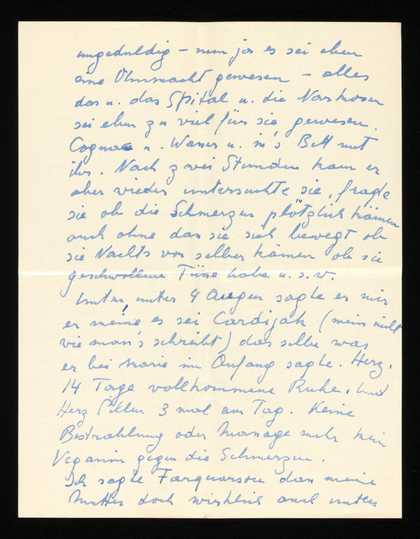 ungeduldig – nun ja es sei eben
eine Ohnmacht gewesen – alles
das u. das Spital u. die Narkosen
sei eben zu viel für sie gewesen.
Cognac u. Wasser u. in's Bett mit
ihr. Nach zwei Stunden kam er
aber wieder untersuchte sie, fragte
sie ob die Schmerzen plötzlich kämen
auch ohne das sie sich bewegt ob
sie Nachts von selber kämen ob sie
geschwollene Füsse habe u.s.v.
unter 4 Augen sagte er mir
er meine es sei Cardijak (weiss nicht
wie man's schreibt) das selbe was
er bei Marie im Anfang sagte. Herz.
14 Tage vollkommene Ruhe. Und
Herz Pillen 3 mal am Tag. Keine
Bestrahlung oder Massage mehr kein
Veganin gegen die Schmerzen.
Ich sagte Farquarson das meine
Mutter doch wirklich auch unten